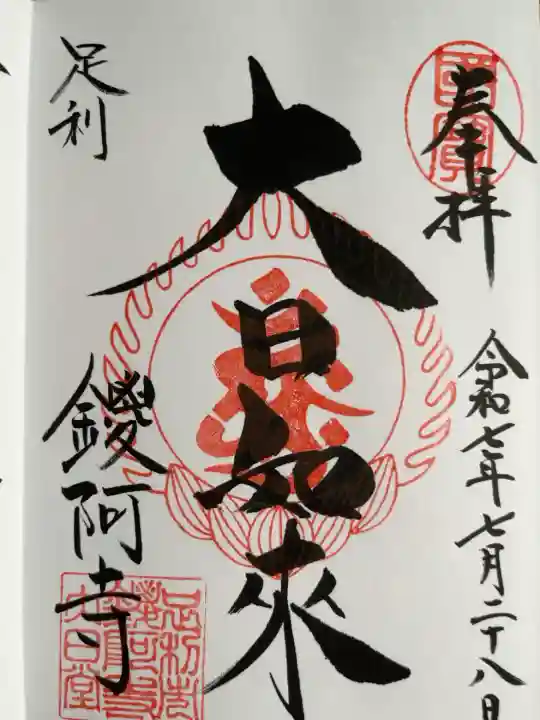 奉拝
令和七年七月二十八日
大日如来
足利
鑁阿寺
國寶